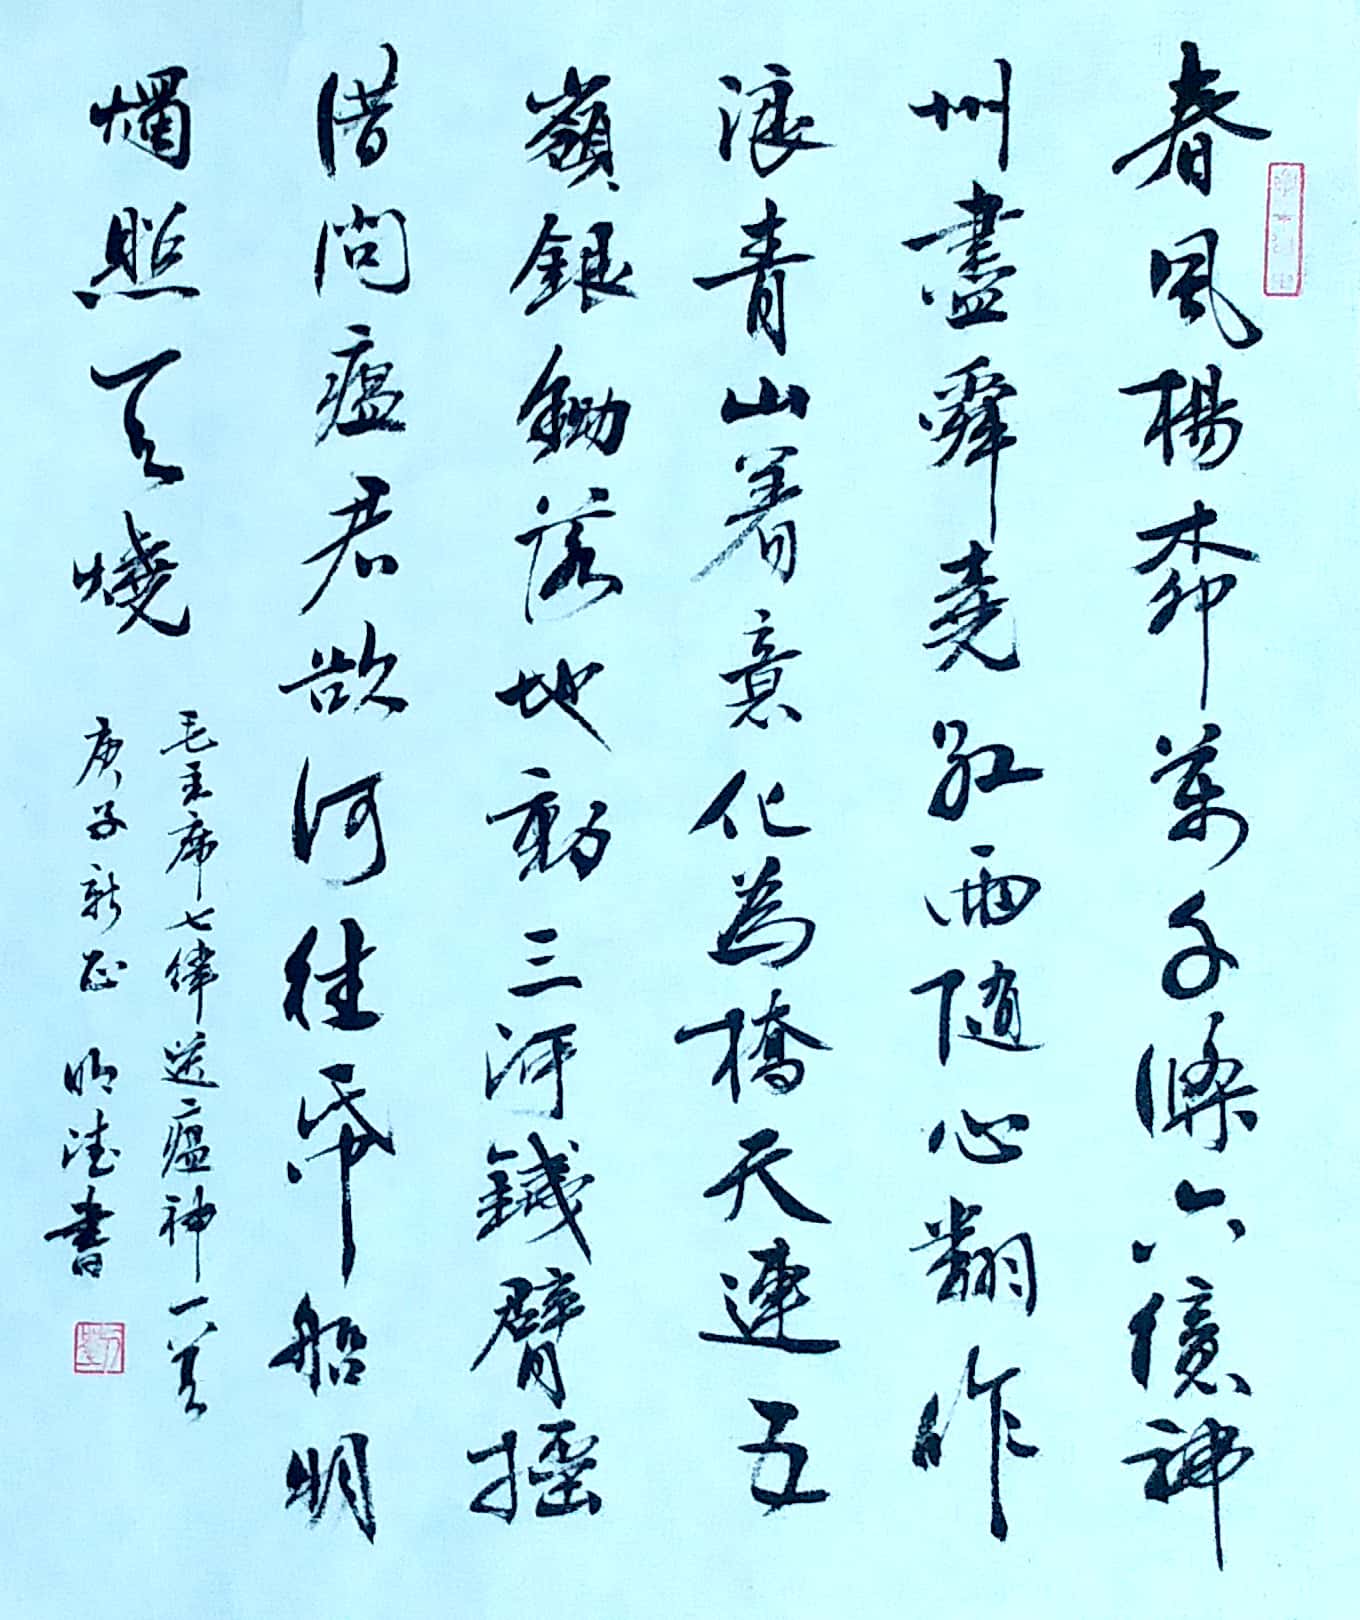 春風楊柳萬千條六億神
州盡舜堯紅雨随心翻作
浪青山着意化為橋天連五
嶺銀鋤落地動三河鐵臂摇
借問瘟君欲何往帋船明
燭照天燒
毛主席七律送瘟神一首
庚子新正 明書